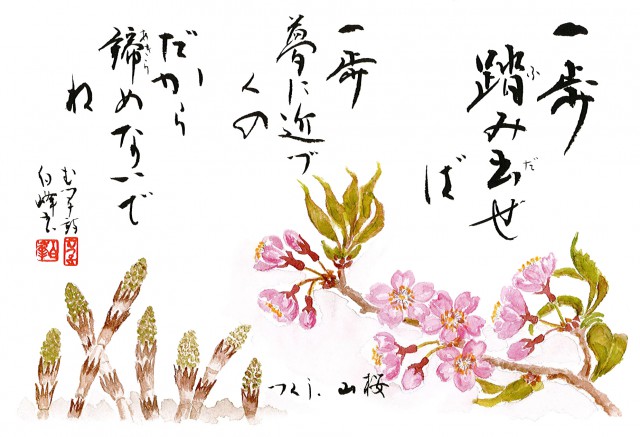 一歩
踏み出せ
ば
一歩
夢に近づ
くの
だから
諦めないで
ね
つくし 山桜